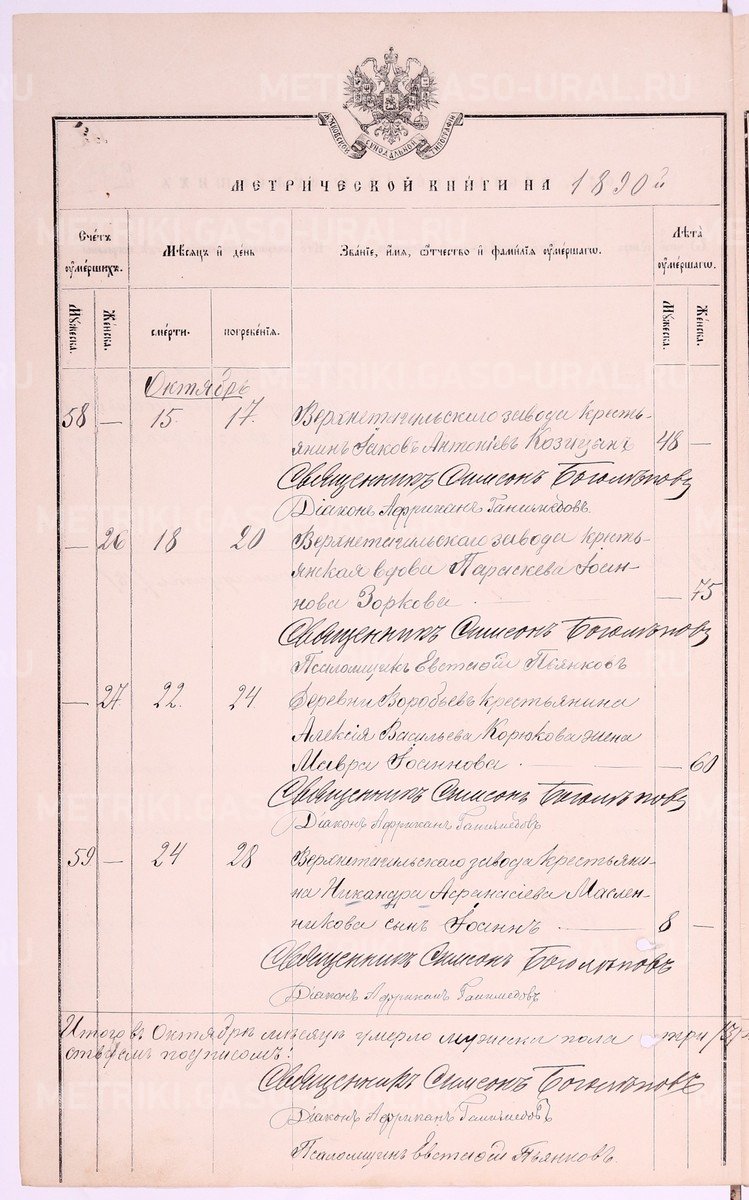 METRIKI.GASO-URAL.RU
МОСКОВСКОЙ СѴНОДАЛЬНОЙ ТИПОГРАФІИ
МЕТРИЧЕСКОЙ КНИГИ НА 1890й
Счетъ умершихъ.
Мѣсяцъ и день
Званіе, имя, отчество и фамилія умершаго.
Лѣта умершаго.
Мужеска.
Женска.
смерти.
погребенія.
Мужеска.
Женска.
Октябрь
58 — 15. 17. Верхнетагильскаго завода кресть-
янинъ Іаковъ Антоніевъ 48 —
Священникъ Симеонъ Боголѣповъ
Діаконъ Африканъ Ганимедовъ
— 26 18 20 Верхнетагильскаго завода кресть-
янская вдова Параскева Іоан-
нова Зоркова — 75
Священникъ Симеонъ Боголѣповъ
Псаломщикъ Евстафій Пьянковъ
— 27. 22. 24. Деревни Воробьевъ крестьянина
Алексія Васильева Корюкова жена
Мавра Іоаннова — 60
Священникъ Симеонъ Боголѣповъ
Діаконъ Африканъ Ганимедовъ
59 — 24 28 Верхнетагильскаго завода крестьяни-
на Никандра Афанасіева Маслен-
никова сынъ Іоаннъ — 8 —
Священникъ Симеонъ Боголѣповъ
Діаконъ Африканъ Ганимедовъ
Итого въ Октябрѣ мѣсяцѣ умерло мужска пола три /3/
подписомъ:
Священникъ Симеонъ Боголѣповъ
Діаконъ Африканъ Ганимедовъ
Псаломщикъ Евстафій Пьянковъ